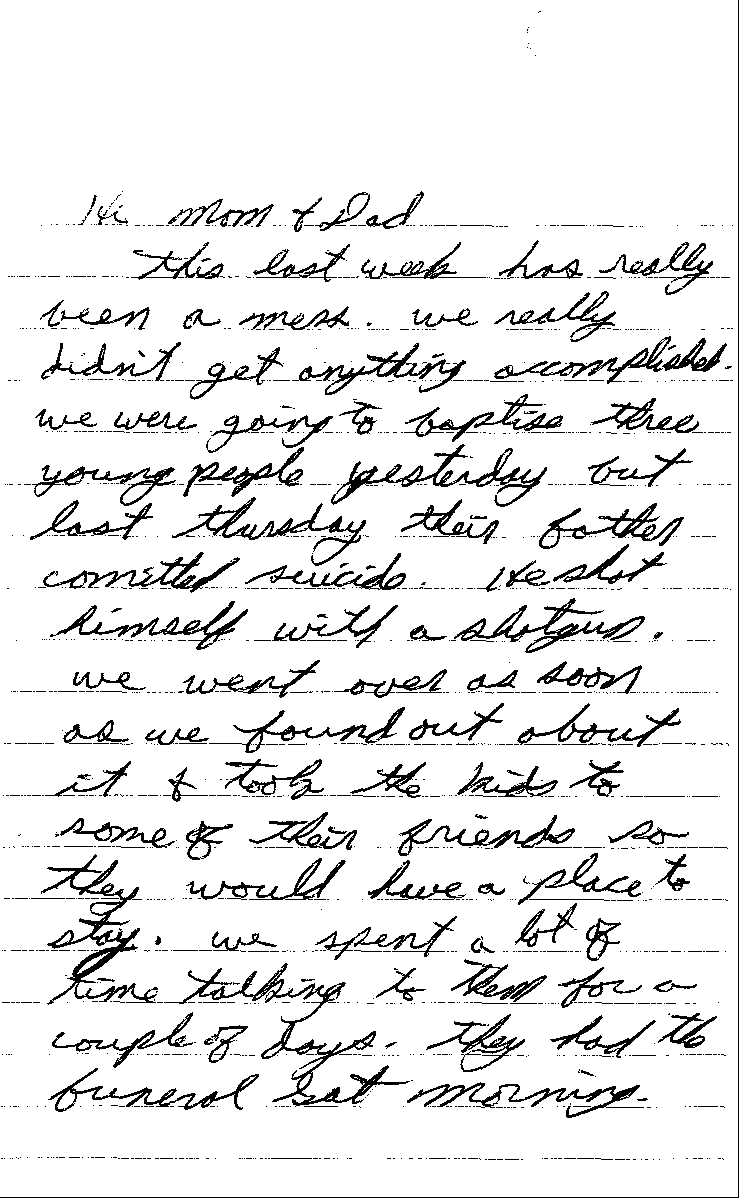 Hi Mom & Dad
This last week has really
been a mess. we really
didn't get anything accomplished.
we were going to baptise three
young people yesterday but
last thursday their father
comitted suicide. He shot
himself with a shotgun.
we went over as soon
as we found out about
it & took the kids to
some of their friends so
they would have a place to
stay. we spent a lot of
time talking to them for a
couple of days. they had the
funeral Sat morning.